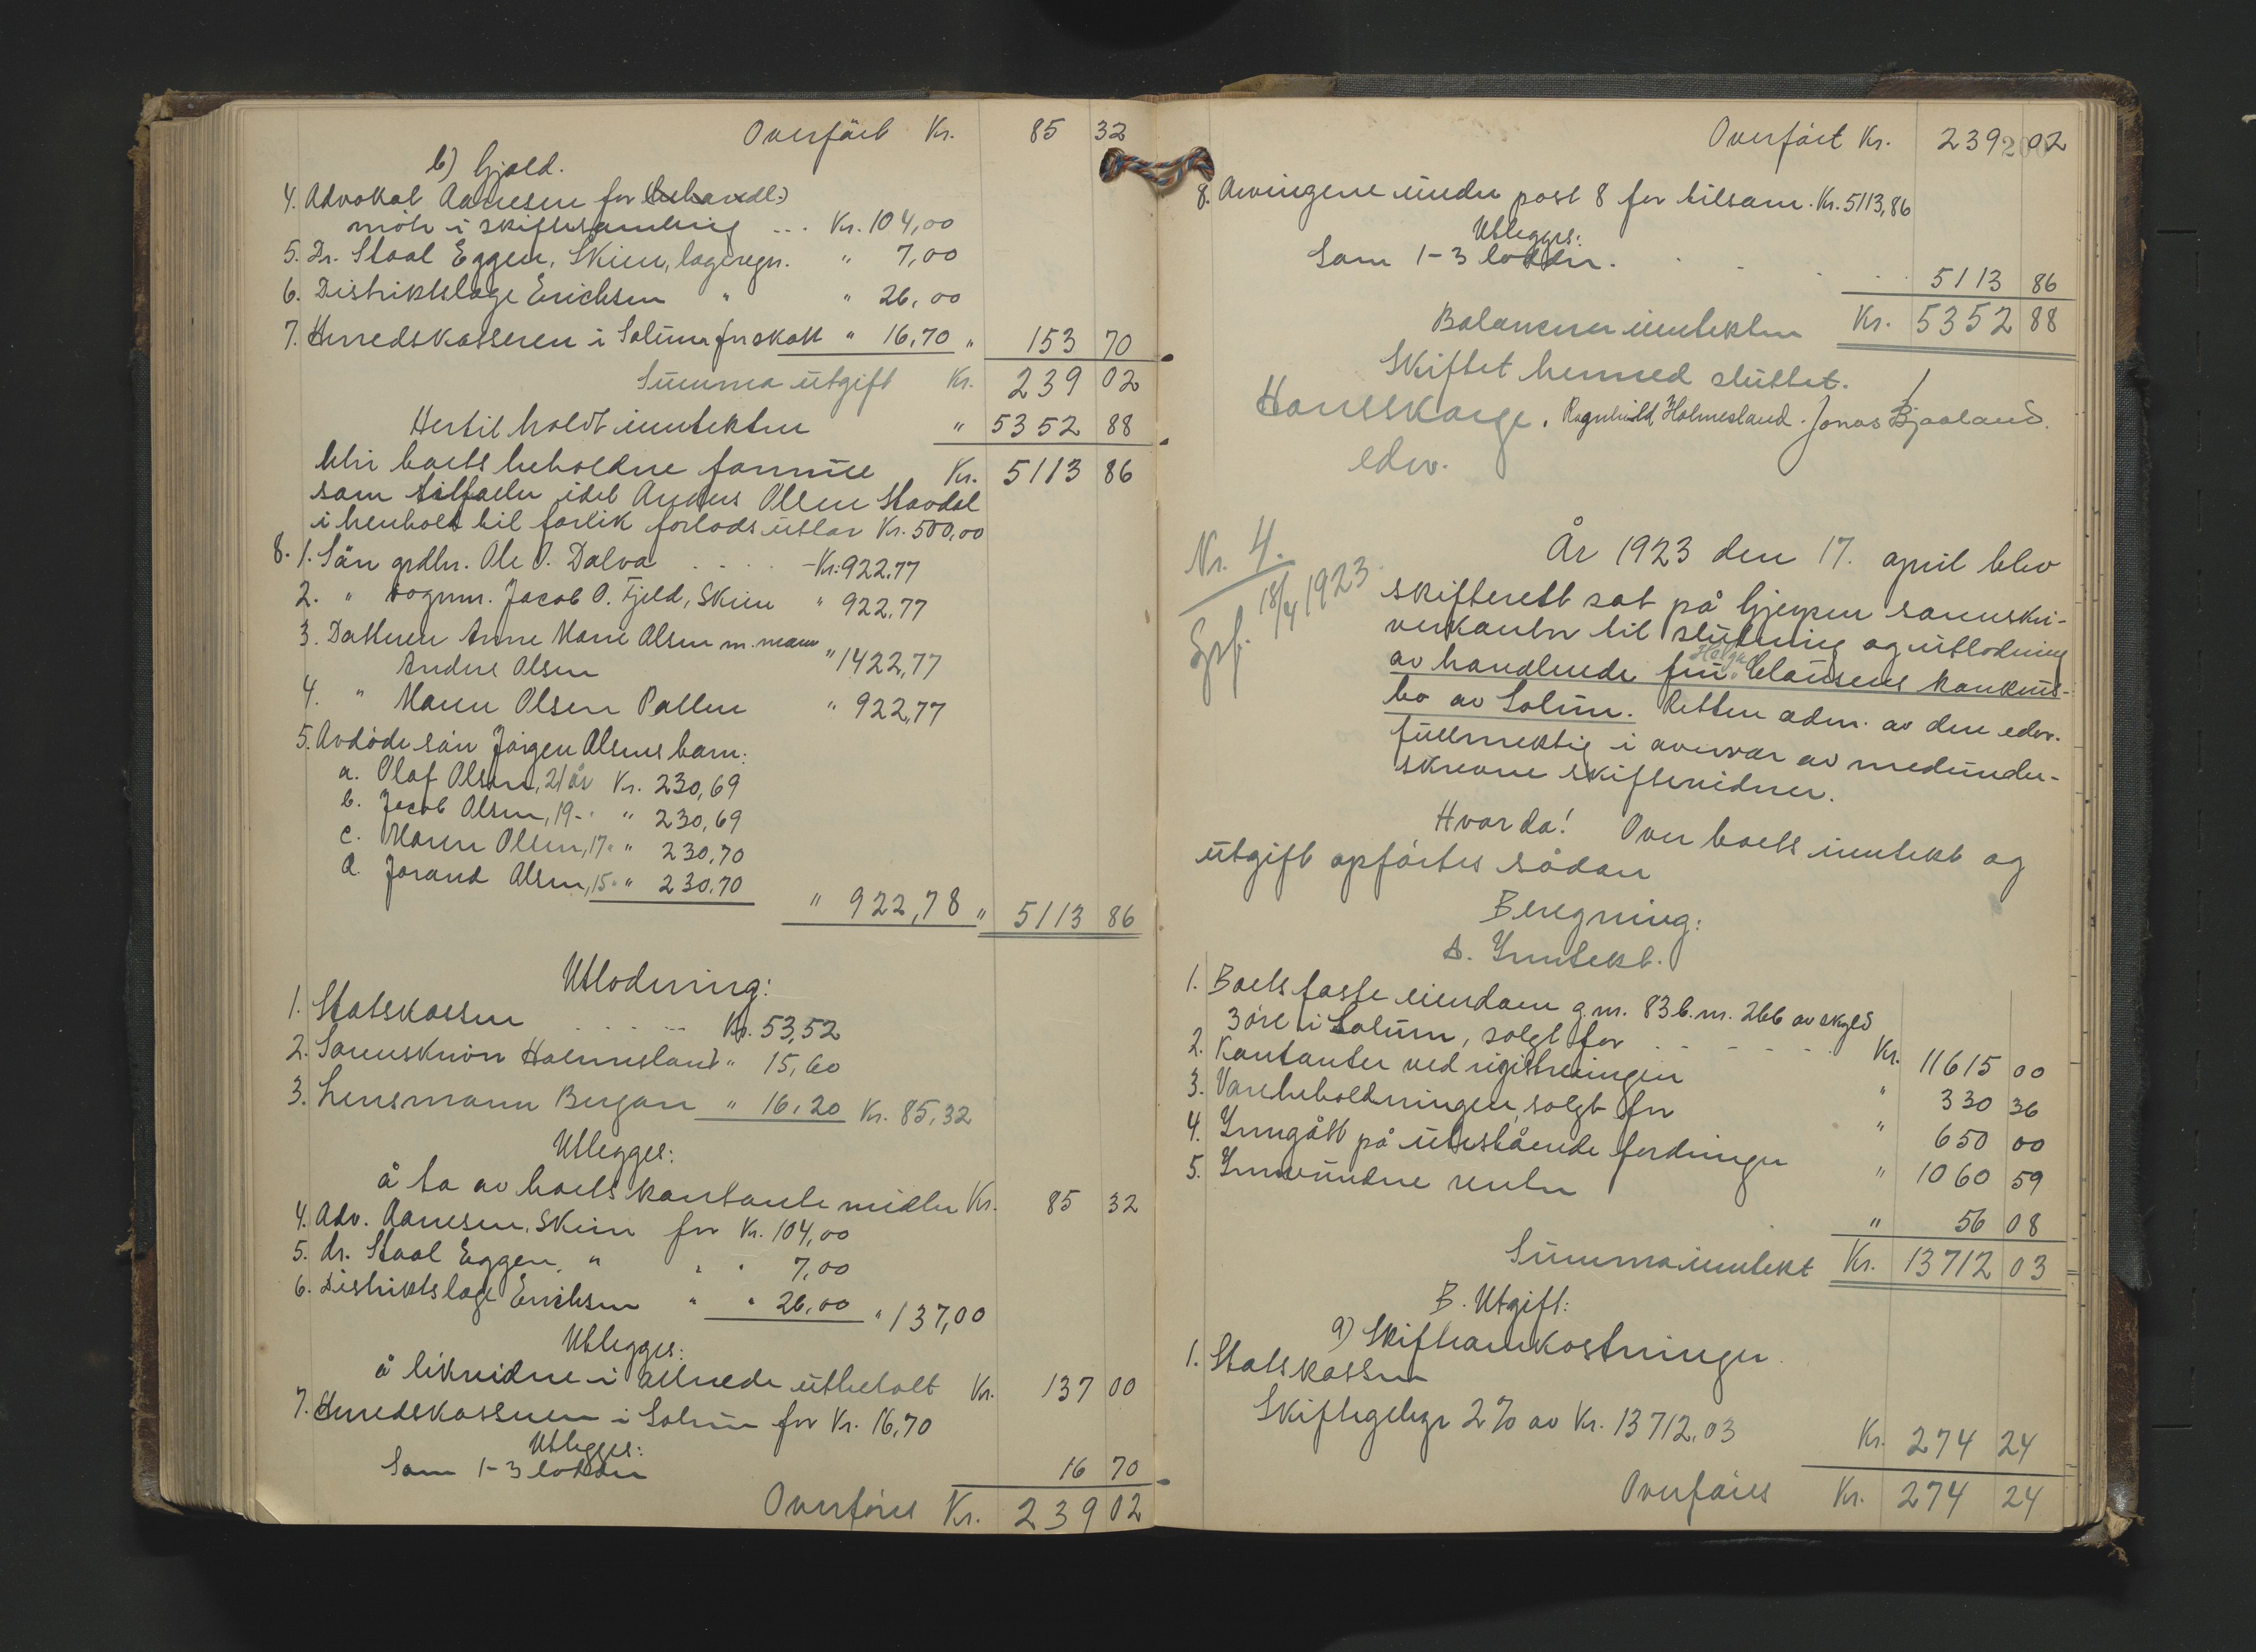 Overfört Kr. 85 32
b) Gjæld.
4. Advokat Aanesen for (behandl.)
möte i skiftesamling ... Kr. 104,00
5. Dr. Staal Eggen, Skien, lægeregn. " 7,00
6. Distriktslæge Erichsen " " 26,00
7. Herredskasseren i Solum for skatt " 16,70 " 153 70
Summa utgift Kr. 239 02
Hertil holdt inntekten " 5352 88
blir boets beholdne formue Kr. 5113 86
som tilfaller idet Anders Olsen
i henhold til forlik forlods utlar Kr. 500,00
8. 1. Sön grdbr. Ole O. Dalva . . . . - Kr. 922,77
2. " vognm. Jacob O. Fjeld, Skien " 922,77
3. Datteren Anne Marie Olsen m. mann
Anders Olsen " 1422,77
4. " Maren Olsen Pallen " 922,77
5. Avdöde sön Jörgen Olsens barn:
a. Olaf Olsen, 21 år Kr. 230,69
b. Jacob Olsen, 19 - " " 230,69
c. Maren Olsen, 17 " " 230,70
d. Jorand Olsen, 15 " " 230,70
" 922,78 " 5113 86
Utlodning:
1. Statskassen . . . . . Kr. 53,52
2. Sorenskriver Holmesland " 15,60
3. Lensmann Bergan " 16,20 Kr. 85,32
Utlegges:
å ta av boets kontante midler Kr. 85 32
4. Adv. Aanesen, Skien for Kr. 104,00
5. dr. Staal Eggen, " " " 7,00
6. Distriktslæge Erichsen " " 26,00 " 137,00
Utlegges:
å likvidere i allerede utbetalt Kr. 137 00
7. Herredskasseren i Solum for Kr. 16,70
Utlegges:
Som 1-3 lodder 16 70
Overföres Kr. 239 02
Overfört Kr. 239 02
200
8. Arvingene under post 8 for tilsam. Kr. 5113,86
Utlegges:
Som 1-3 lodder. 5113 86
Balanserer inntekten Kr. 5352 88
Skiftet hermed sluttet.
Ragnhild Holmesland. Jonas Bjaaland.
edsv.
Nr. 4.
18/4 1923.
År 1923 den 17. april blev
skifterett sat på Gjerpen sorenskri-
verkontor til slutning og utlodning
av handlende fru Helga Clausens konkurs-
bo av Solum. Retten adm. av den edsv.
fullmektig i overvær av medunder-
skrevne skiftevidner.
Hvorda! Over boets inntekt og
utgift opförtes sådan
Beregning:
A. Inntekt.
1. Boets faste eiendom g.nr. 83 b.nr. 266 av skyld
3 öre i Solum, solgt for . . . . . Kr. 11615 00
2. Kontanter ved registreringen " 330 36
3. Varebeholdningen, solgt for " 650 00
4. Inngått på utestående fordringer " 1060 59
5. Innvundne renter " 56 08
Summa inntekt Kr. 13712 03
B. Utgift:
a) Skifteomkostninger.
1. Statskassen
Skiftegebyr 2% av Kr. 13712,03 Kr. 274 24
Overföres Kr. 274 24